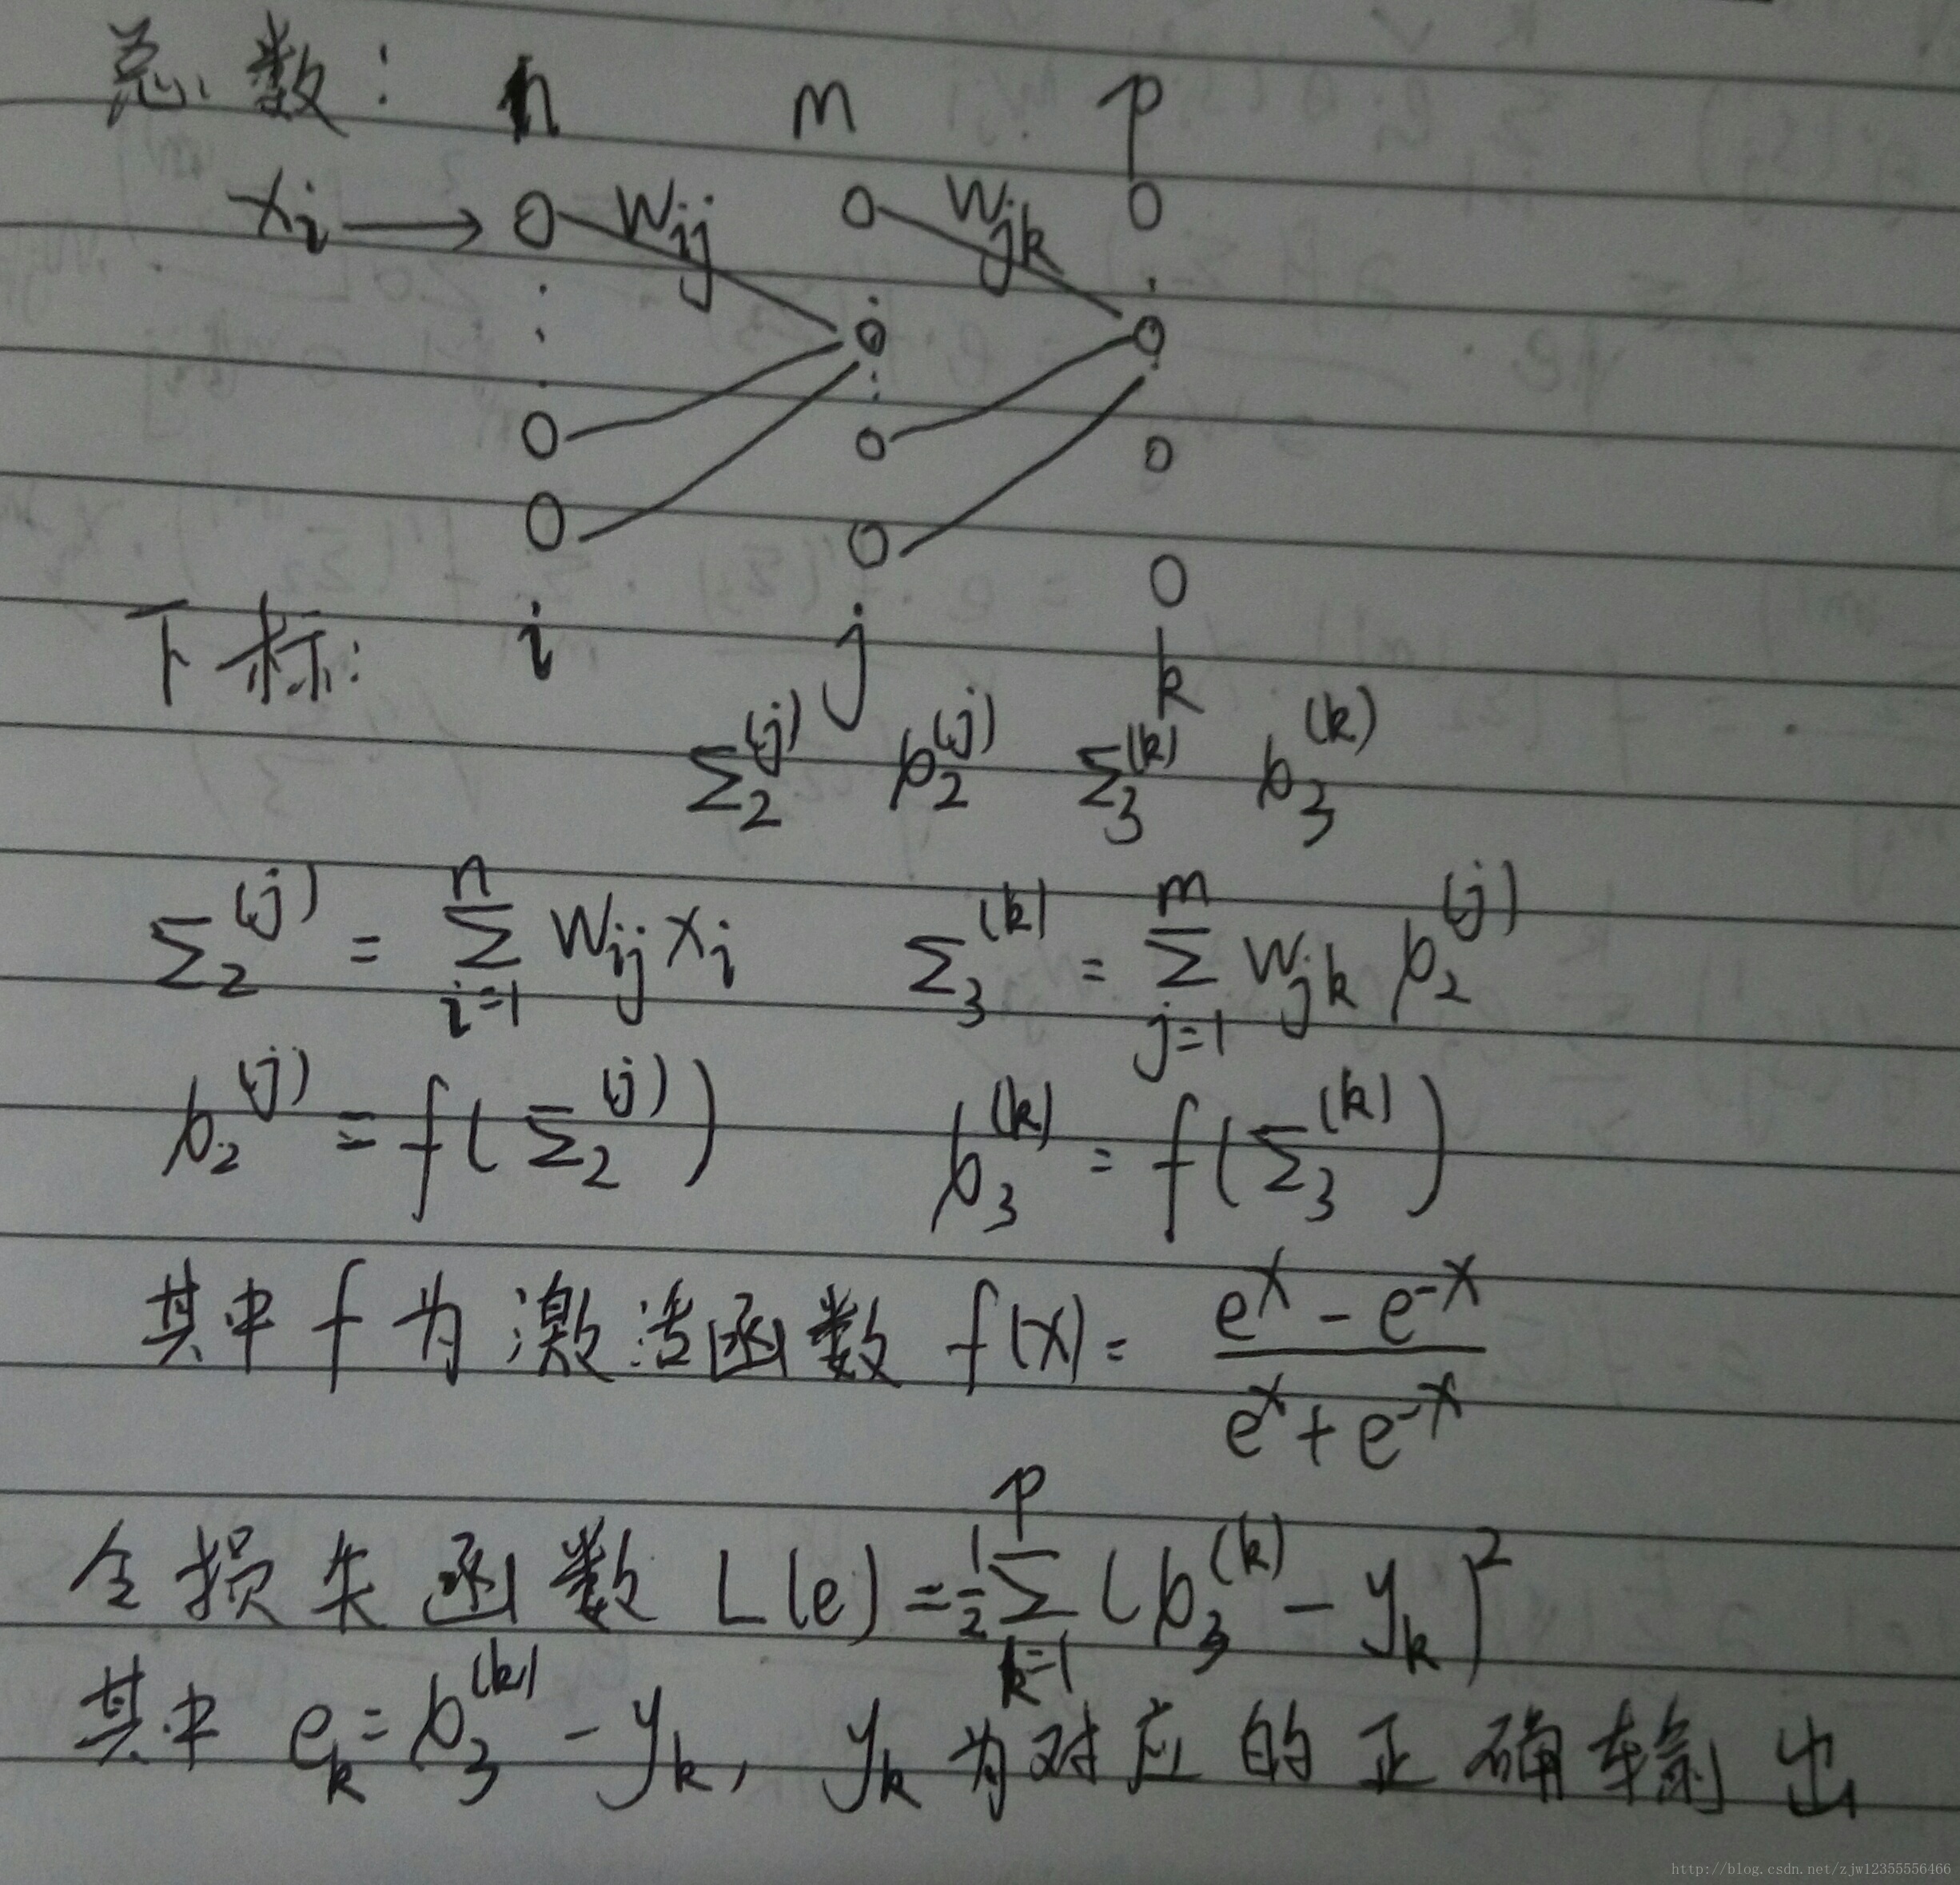 总数: n m p
x_i → W_ij W_jk
下标: i j k
Σ_2^(j) b_2^(j) Σ_3^(k) b_3^(k)
Σ_2^(j) = Σ_{i=1}^{n} W_ij x_i Σ_3^(k) = Σ_{j=1}^{m} W_jk b_2^(j)
b_2^(j) = f(Σ_2^(j)) b_3^(k) = f(Σ_3^(k))
其中 f 为激活函数 f(x) = (e^x - e^-x) / (e^x + e^-x)
令损失函数 L(e) = 1/2 Σ_{k=1}^{p} (b_3^(k) - y_k)^2
其中 e_k = b_3^(k) - y_k, y_k 为对应的正确输出
http://blog.csdn.net/zjw12355556466